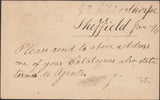 Sheffield Jan
Please send to above address
one of your Catalogues also state
terms to Agents